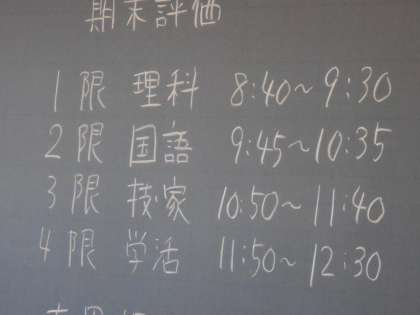 期末評価
1限 理科 8:40~9:30
2限 国語 9:45~10:35
3限 技・家 10:50~11:40
4限 学活 11:50~12:30